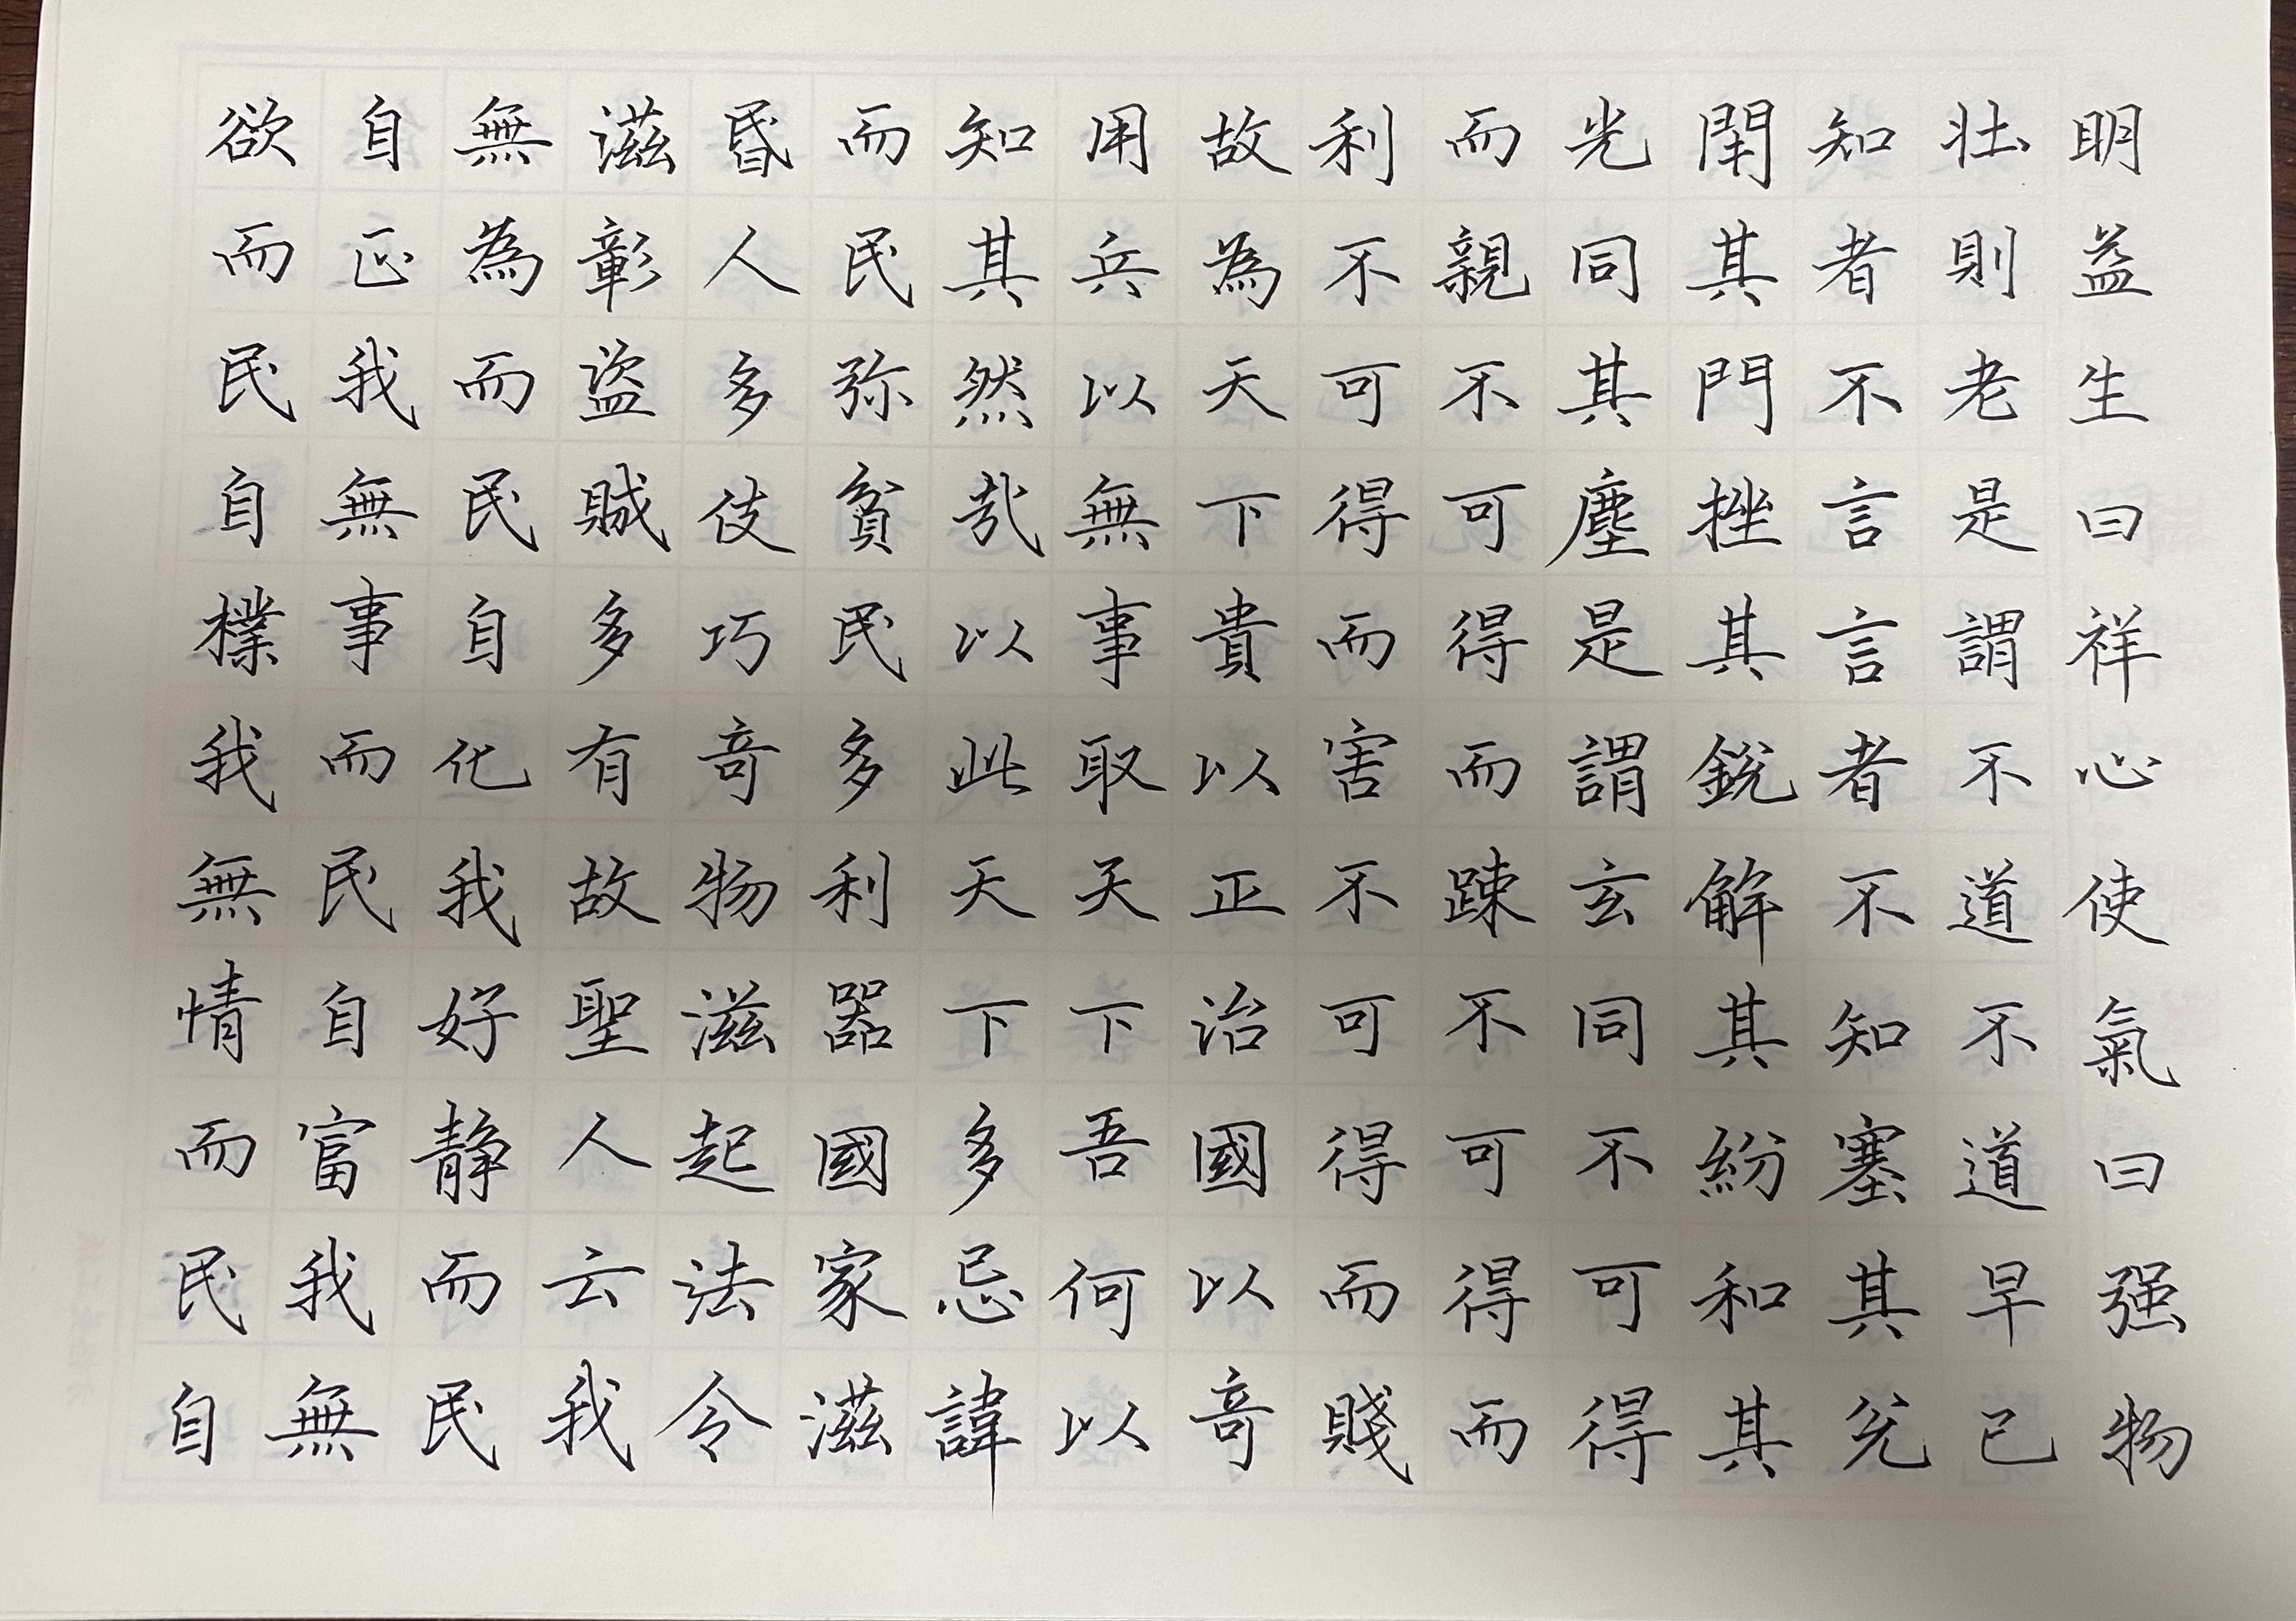 明益生曰祥心使氣曰强物
壯則老是謂不道不道早已
知者不言言者不知塞其兊
閇其門挫其銳解其紛和其
光同其塵是謂玄同不可得
而親不可得而踈不可得而
利不可得而害不可得而賤
故為天下貴以正治國以奇
用兵以無事取天下吾何以
知其然哉以此天下多忌諱
而民弥貧民多利器國家滋
昏人多伎巧奇物滋起法令
滋彰盜賊多有故聖人云我
無為而民自化我好静而民
自正我無事而民自富我無
欲而民自樸我無情而民自